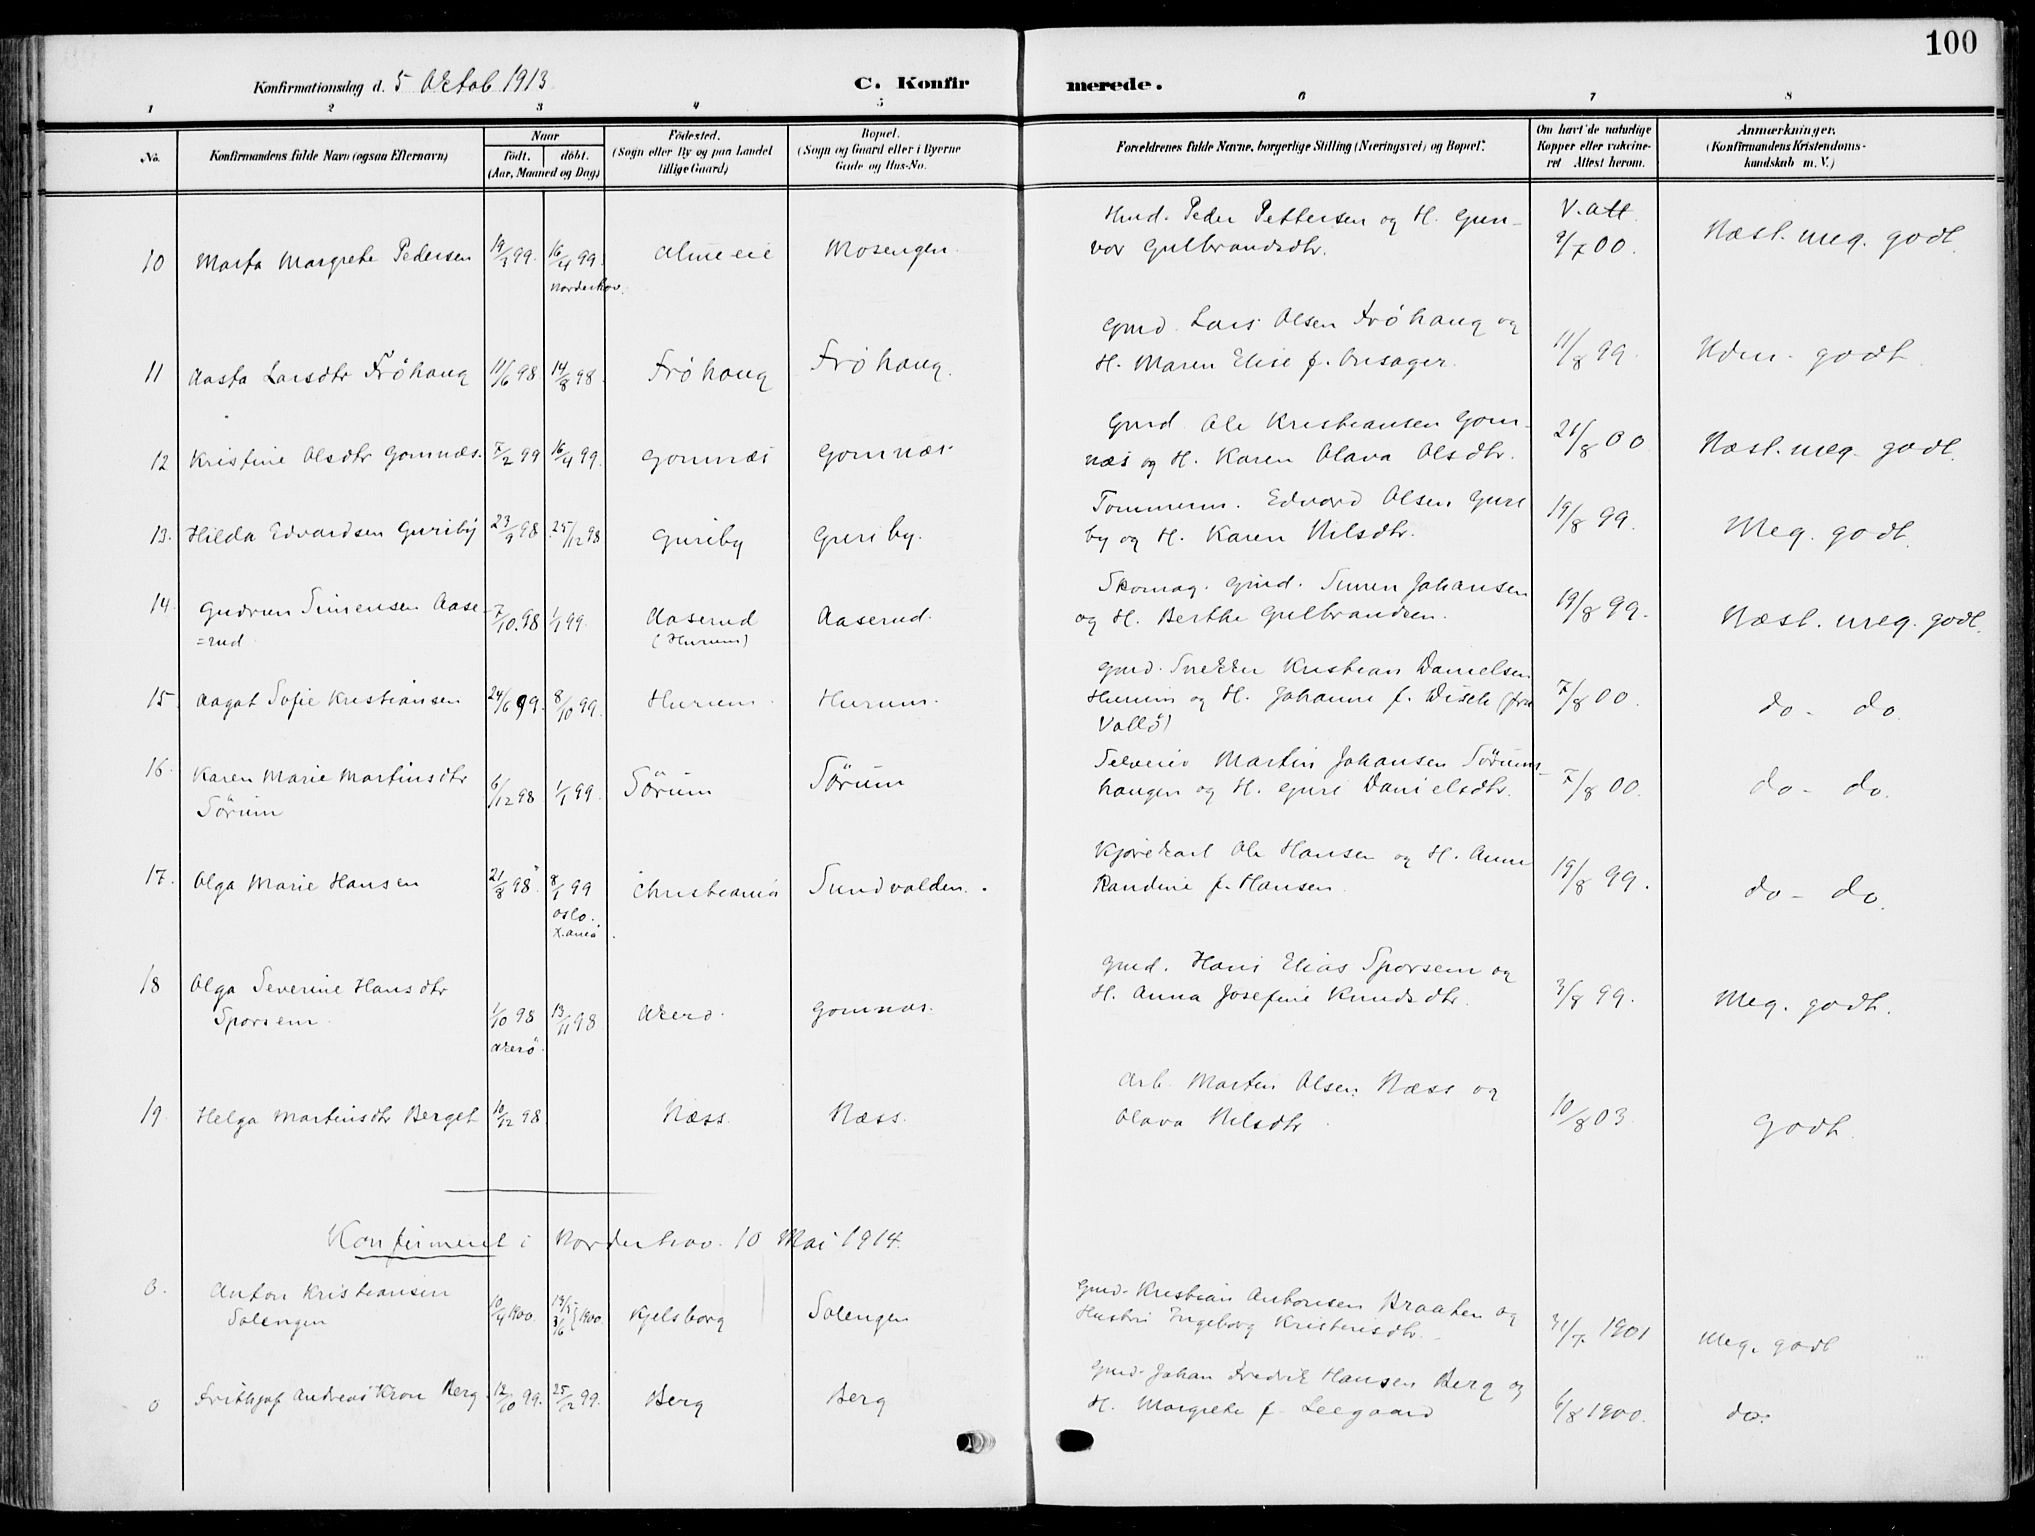 100
Konfirmationsdag d. 5 Oktob 1913
C. Konfirmerede.
1 2 3 4 5 6 7 8
No.
Konfirmandens fulde Navn (ogsaa Efternavn)
Naar
födt. döbt.
(Aar, Maaned og Dag)
Födested.
(Sogn eller By og paa Landet
tillige Gaard)
Bopæl.
(Sogn og Gaard eller i Byerne
Gade og Hus-No.
Forældrenes fulde Navne, borgerlige Stilling (Næringsvei) og Bopæl.
Om havt de naturlige
Kopper eller vakcine-
ret Attest herom.
Anmærkninger.
(Konfirmandens Kristendoms-
kundskab m. V.)
Hmd. Peder Pettersen og H. Gun- V. att.
10 Marta Margrethe Pedersen 99. 16/4 99. Almeeie Mosengen. vor Gulbrandsdtr. 9/7 00. Næst. meg. godt.
Norderhov.
Gmd. Lars Olsen Fröhaug og
11 Aasta Larsdtr Fröhaug 11/6 98 14/8 98. Fröhaug Fröhaug. H. Maren Elise f. Onsager. 11/8 99. Udm. godt.
Gmd. Ole Kristiansen Gom-
12 Kristine Olsdtr Gomnæs. 7/2 99 16/4 99. Gomnæs Gomnæs. næs og H. Karen Olava Olsdtr. 21/8 00 Næst. meg. godt.
Tommerm. Edvard Olsen Guri
13. Hilda Edvardsen Guriby 23/9 98 25/12 98 Guriby Guriby. by og H. Karen Nilsdtr. 19/8 99. Meg. godt.
Skomag. Gmd. Simen Johansen
14. Gudrun Simensen Aase- 7/10. 98 1/1 99. Aaserud Aaserud. og H. Berthe Gulbrandsen. 19/8 99. Næst. meg. godt.
=rud (Hurum)
Gmd. Snekker Kristian Danielsen
15. Aagot Sofie Kristiansen 24/6 99. 8/10 99. Hurum. Hurum. Hurum og H. Johanne f. Disch (fra 7/8 00. do - do.
Vallö)
Selveier Martin Johansen Sørums-
16. Karen Marie Martinsdtr 6/12 98 1/1 99. Sørum Sørum haugen og H. Guri Danielsdtr. 7/8 00. do - do.
Sörum
Kjørekarl Ole Hansen og H. Anne
17. Olga Marie Hansen 21/8 98 8/1 99 Christiania Sundvolden. Randine f. Hansen. 19/8 99. do - do.
Oslo.
X.ania.
Gmd. Hans Elias Sporsem og
18 Olga Severine Hansdtr 1/10 98 13/11 98 Askerö. Gomnæs. H. Anna Josefine Knudsdtr. 3/8 99. Meg. godt.
Sporsem.
Arb. Martin Olsen Næss og
19. Helga Martinsdtr Berget 10/12 98. Næss. Næss. Olava Nilsdtr. 10/8 03. Godt.
Konfirmeret i Norderhov. 10 Mai 1914.
0. Anton Kristiansen 10/4 1900. 1900. Kjelsborg Solengen Gmd. Kristian Antonsen Braaten og
Solengen Hustru Ingeborg Kristensdtr. 31/7 1901 Meg. godt
Gmd. Johan Fredrik Hansen Berg og
0 Frithjof Andreas Kron Berg. 12/10 99. 25/12 99. Berg Berg H. Margrethe f. Leegaard 6/8 1900. do.